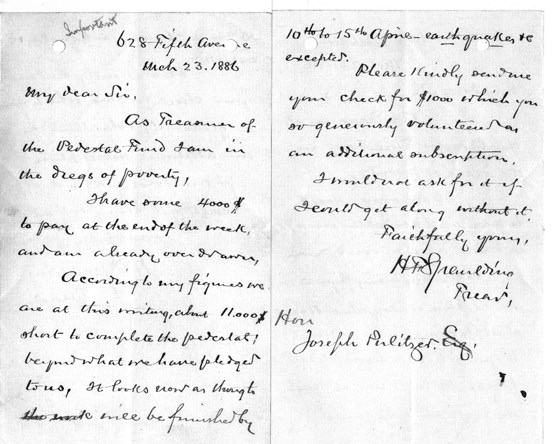 Important
628 Fifth Avenue
Mch 23. 1886
My dear Sir,
As Treasurer of
the Pedestal Fund I am in
the dregs of poverty,
I have some 4000 $
to pay at the end of the week,
and am already over drawn,
According to my figures we
are at this writing, about 11.000 $
short to complete the pedestal,
beyond what we have pledged
to us, It looks now as though
the work will be finished by
10th to 15th April - earthquakes &c
excepted.
Please Kindly send me
your check for $1000 which you
so generously volunteered as
an additional subscription.
I would not ask for it if
I could get along without it.
Faithfully yours,
H F Spaulding
Treas,
Hon
Joseph Pulitzer. Esq.